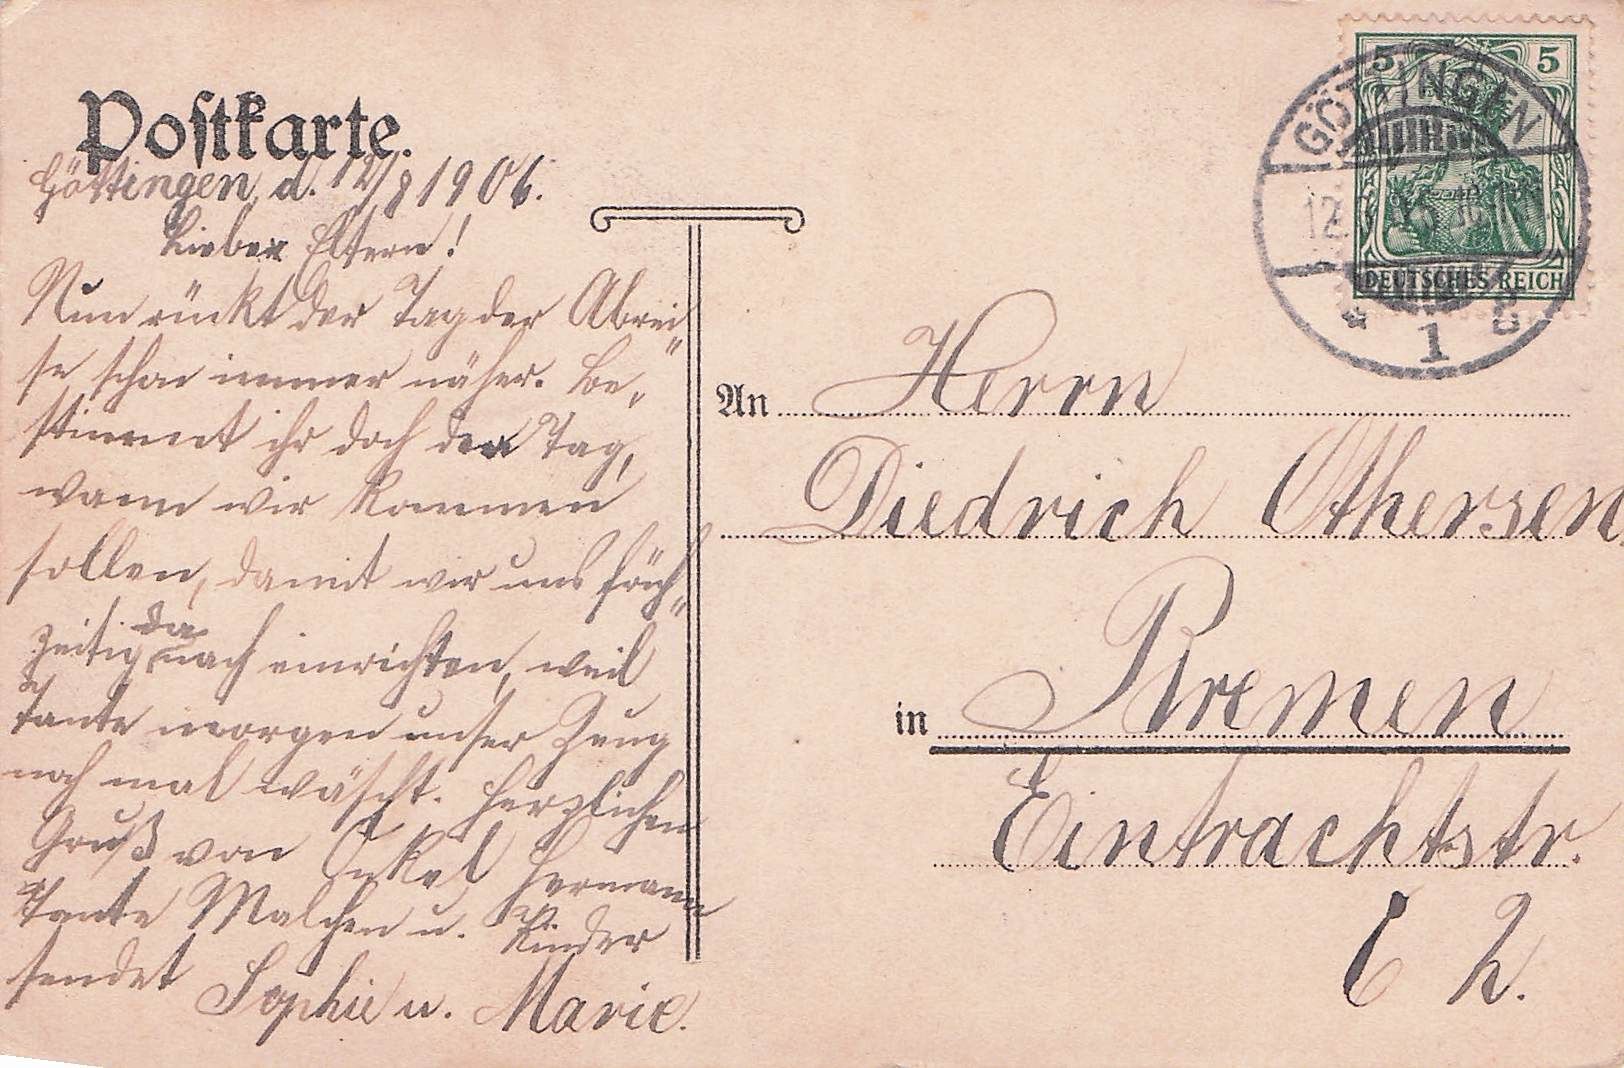 Postkarte.
Göttingen, d. 12/8 1906.
Lieben Eltern!
Nun rückt der Tag der Abrei"
se schon immer näher. Be"
stimmt ihr doch den Tag,
wann wir kommen
sollen, damit wir uns früh"
zeitig danach einrichten, weil
Tante morgen unser Zeug
noch mal wäscht. Herzlichen
Gruß von Onkel Hermann
Tante Malchen u. Kinder
sendet Sophie u. Marie.
5 5
GÖTTINGEN
DEUTSCHES REICH
* 1 b
An Herrn
Diedrich Othersen,
in Bremen
Eintrachtstr.